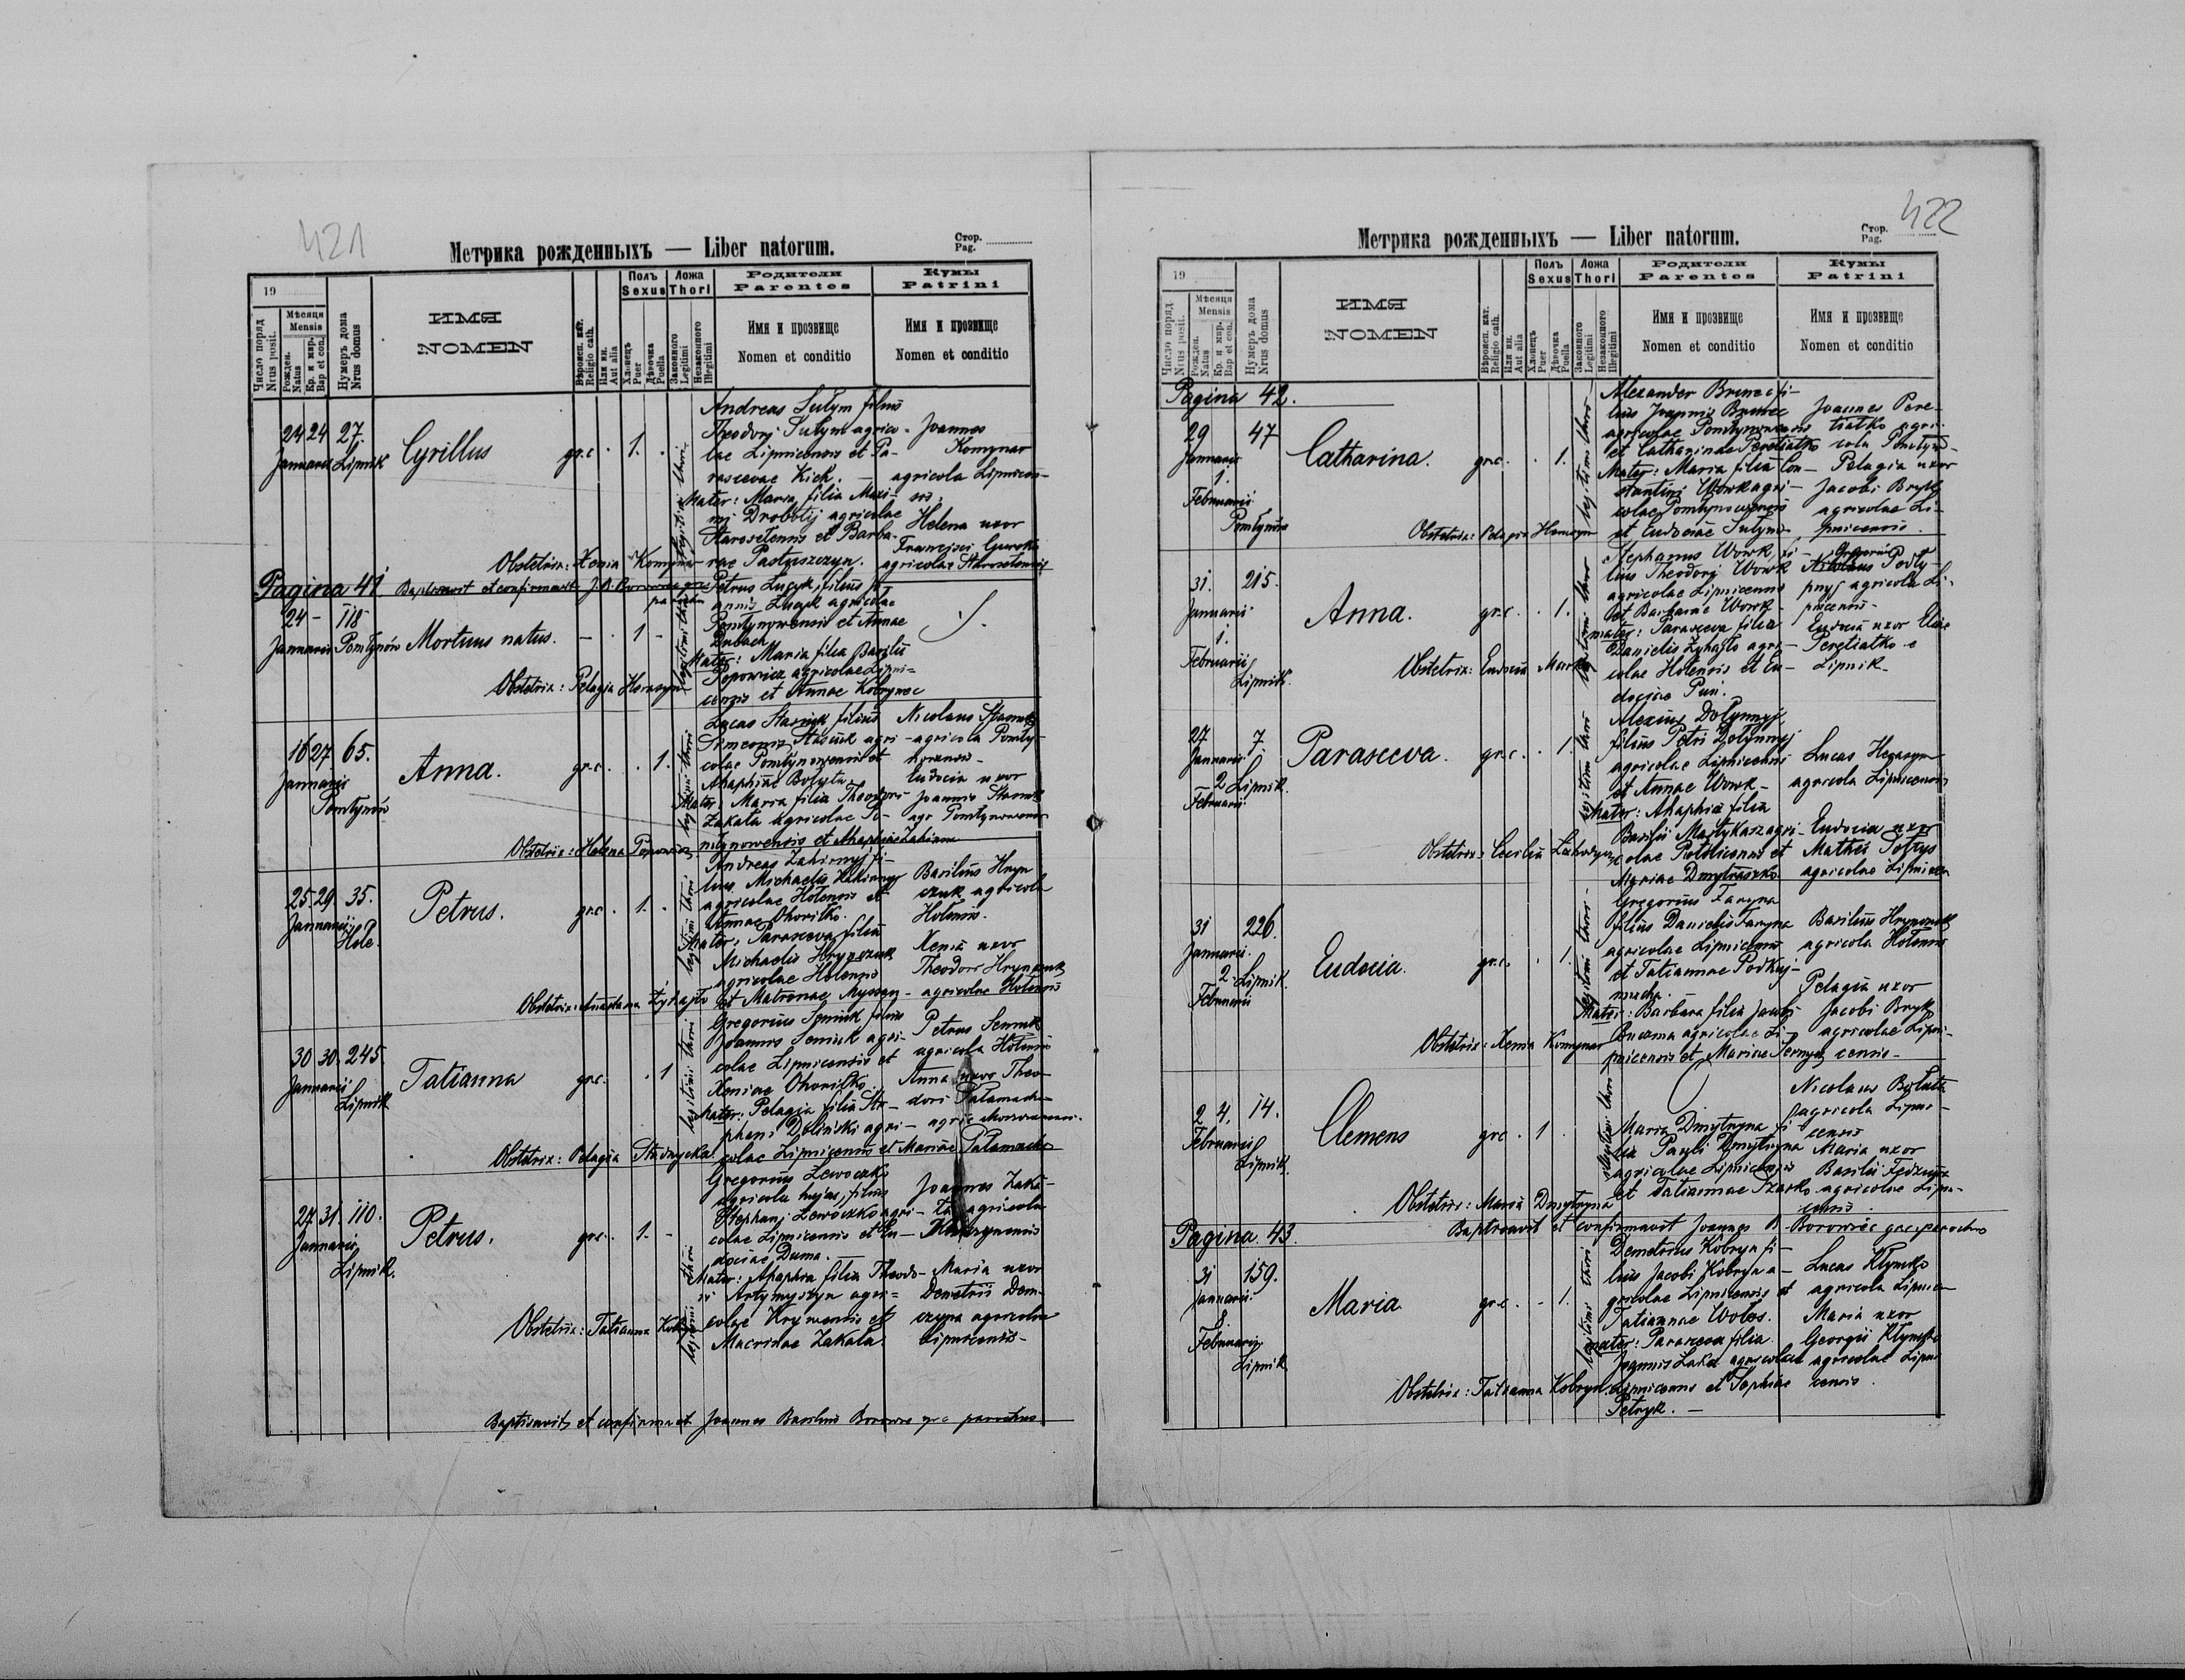 421
Метрика рожденныхъ — Liber natorum.
Стор.
Pag.
19
Число поряд
Nrus posit.
Мѣсяця
Mensis
Рожден.
Natus
Кр. и мир.
Bap et con.
Нумеръ дома
Nrus domus
ИМЯ
NOMEN
Вѣроисп. кат.
Religio cath.
Или ин.
Aut alia
Полъ
Sexus
Хлопецъ
Puer
Дѣвочка
Puella
Ложа
Thori
Законного
Legitimi
Незаконного
Illegitimi
Родители
Parentes
Имя и прозвище
Nomen et conditio
Кумы
Patrini
Имя и прозвище
Nomen et conditio
24 24 27.
Januarii Lipnik
Cyrillus
gr.c . 1. .
legitimi thori
Andreas Sułym filius
Theodorj Sułym agrico-
lae Lipnicensis et Pa-
rascevae Kich. —
Mater: Maria filia Maxi-
mj Drobotij agricolae
Staroselensis et Barba-
rae Pastuszczyn.
Joannes
Komynar
agricola Lipnicen-
sis.
Helena uxor
Francisci Gurski
agricolae Staroselensis
Obstetrix: Xenia Komynar
Pagina 41
Baptisavit et confirmavit J. B. Borowiec gr.c
parochus
24 - 118
Januarii Pomłynów
Mortuus natus.
— . 1 -
legitimi thori
Petrus Lucyk, filius Jo-
annis Lucyk agricolae
Pomłynowensis et Annae
Dubach
Mater: Maria filia Basilii
Popowicz agricolae Lipni-
censis et Annae Kobrynec
Obstetrix: Pelagia Harasym
16 27 65.
Januarii
Pomłynów
Anna.
gr.c. . . 1.
legitimi thori
Lucas Stasiuk filius
Simeonis Stasiuk agri-
colae Pomłynowensis et
Ahaphiae Bołyta
Mater: Maria filia Theodori
Zakała agricolae Po-
młynowensis et Ahaphiae Zahirna
Nicolaus Stasiuk
agricola Pomły-
nowensis-
Eudocia uxor
Joannis Stasiuk
agr Pomłynowensis
Obstetrix: Helena Popowicz
25. 29. 35.
Januarii
Hole.
Petrus.
gr.c . 1. .
legitimi thori
Andreas Zahirnyj fi-
lius Michaelis Zahirnyj
agricolae Holensis et
Annae Ohoriłko.
Mater: Parasceva filia
Michaelis Hrynczuk
agricolae Holensis
et Matronae Myssan -
Basilius Hryn
czuk agricola
Holensis.
Xenia uxor
Theodori Hrynczuk
agricolae Holensis
Obstetrix: Anastasia Zyhajło
30 30. 245.
Januarii
Lipnik
Tatianna
gr.c. . 1
legitimi thori
Gregorius Seniuk filius
Joannis Seniuk agri-
colae Lipnicensis et
Xeniae Ohoriłko.
Mater: Pelagia filia Ste-
phani Doliński agri-
colae Lipnicensis et Mariae Pałamacka
Petrus Seniuk
agricola Holensis
Anna uxor Theo-
dori Pałamacka
Obstetrix: Pelagia Studnycka
27 31. 110.
Januarii
Lipnik.
Petrus.
gr.c. . 1. -
legitimi thori
Gregorius Lewoczko
agricola hujas, filius
Stephanj Lewoczko agri-
colae Lipnicensis et Eu-
dociae Duma. —
Mater: Ahaphia filia Theodo-
ri Artymyszyn agri-
colae Krywensis et
Macrinae Zakała.
Joannes Zaka-
ła agricola
Maria uxor
Demetrii Dem-
czyna agricolae
Lipnicensis-
Obstetrix: Tatianna Kobryn
Baptisavit et confirmavit Joannes Basilius Borowiec gr.c parochus
422
Метрика рожденныхъ — Liber natorum.
Стор.
Pag.
19
Число поряд
Nrus posit.
Мѣсяця
Mensis
Рожден.
Natus
Кр. и мир.
Bap et con.
Нумеръ дома
Nrus domus
ИМЯ
NOMEN
Вѣроисп. кат.
Religio cath.
Или ин.
Aut alia
Полъ
Sexus
Хлопецъ
Puer
Дѣвочка
Puella
Ложа
Thori
Законного
Legitimi
Незаконного
Illegitimi
Родители
Parentes
Имя и прозвище
Nomen et conditio
Кумы
Patrini
Имя и прозвище
Nomen et conditio
Pagina 42.
29 47
Januarii
1.
Februarii
Pomłynów
Catharina.
gr.c. . 1.
legitimi thori
Alexander Brunec fi-
lius Joannis Brunec
agricolae Pomłynowensis
et Catharinae Peretiatko
Mater: Maria filia Con-
stantini Wowk agri-
colae Pomłynowensis
et Eudociae Sułym-
Joannes Pere-
tiatko agri-
cola Pomłyn-
Pelagia uxor
Jacobi Bryk
agricolae Li-
pnicensis.
Obstetrix: Pelagia Harasym
31. 215.
Januarii
1.
Februarii
Lipnik.
Anna.
gr.c. . 1.
legitimi thori
Stephanus Wowk fi-
lius Theodorj Wowk
agricolae Lipnicensis
et Barbarae Wowk-
mater: Parasceva filia
Danielis Zyhajło agri-
colae Holensis et Eu-
dociae Pun.
Gregorius
Nicolaus Podły-
pnyj agricola Li-
pnicensis-
Eudocia uxor Eliae
Peretiatko e
Lipnik-
Obstetrix: Eudocia Marko
27 7.
Januarii
2 Lipnik.
Februarii
Parasceva.
gr.c. . 1.
legitimi thori
Alexius Dołynnyj
filius Petri Dołynnyj
agricolae Lipnicensis
et Annae Wowk-
Mater: Ahaphia filia
Basilii Martykasz agri-
colae Potoliczensis et
Mariae Dmytraszko
Lucas Harasym
agricola Lipnicensis
Eudocia uxor
Mathei Sołtys
agricolae Lipnicen
Obstetrix: Cecilia
31 226.
Januarii.
2 Lipnik.
Februarii
Eudocia.
gr.c. . 1.
legitimi thori
Gregorius Faryna
filius Danielis Faryna
agricolae Lipnicensis
et Tatiannae Podkuj-
mucha.
Mater: Barbara filia Jacobi
Kuczma agricolae Li-
pnicensis et Mariae Semczyj
Basilius Hrynczuk
agricola Holensis
Pelagia uxor
Jacobi Bryk
agricolae Lipni-
censis-
Obstetrix: Xenia Komynar
2 4. 14.
Februarii
Lipnik.
Clemens
gr.c . 1 .
illegitimi thori
Maria Dmytryna fi
lia Pauli Dmytryna
agricolae Lipnicensis
et Tatiannae Szarko
Nicolaus Bołuta
agricola Lipni-
censis
Maria uxor
Basilii Fedczuk
agricolae Lipni-
censis.
Obstetrix: Maria Dmytryna
Baptisavit et confirmavit Joannes B. Borowiec gr.c. parochus
Pagina 43.
31 159.
Januarii
8.
Februarii
Lipnik
Maria.
gr.c. . - 1.
legitimi thori
Demetrius Kobryn fi-
lius Jacobi Kobryn a-
gricolae Lipnicensis et
Tatiannae Wołos.
mater: Parasceva filia
Joannis Łaka agricolae
Lipnicensis et Sophiae
Petryk. —
Lucas Kłymko
agricola Lipnicen
Maria uxor
Georgii Kłymko
agricolae Lipni
censis.
Obstetrix: Tatianna Kobryn